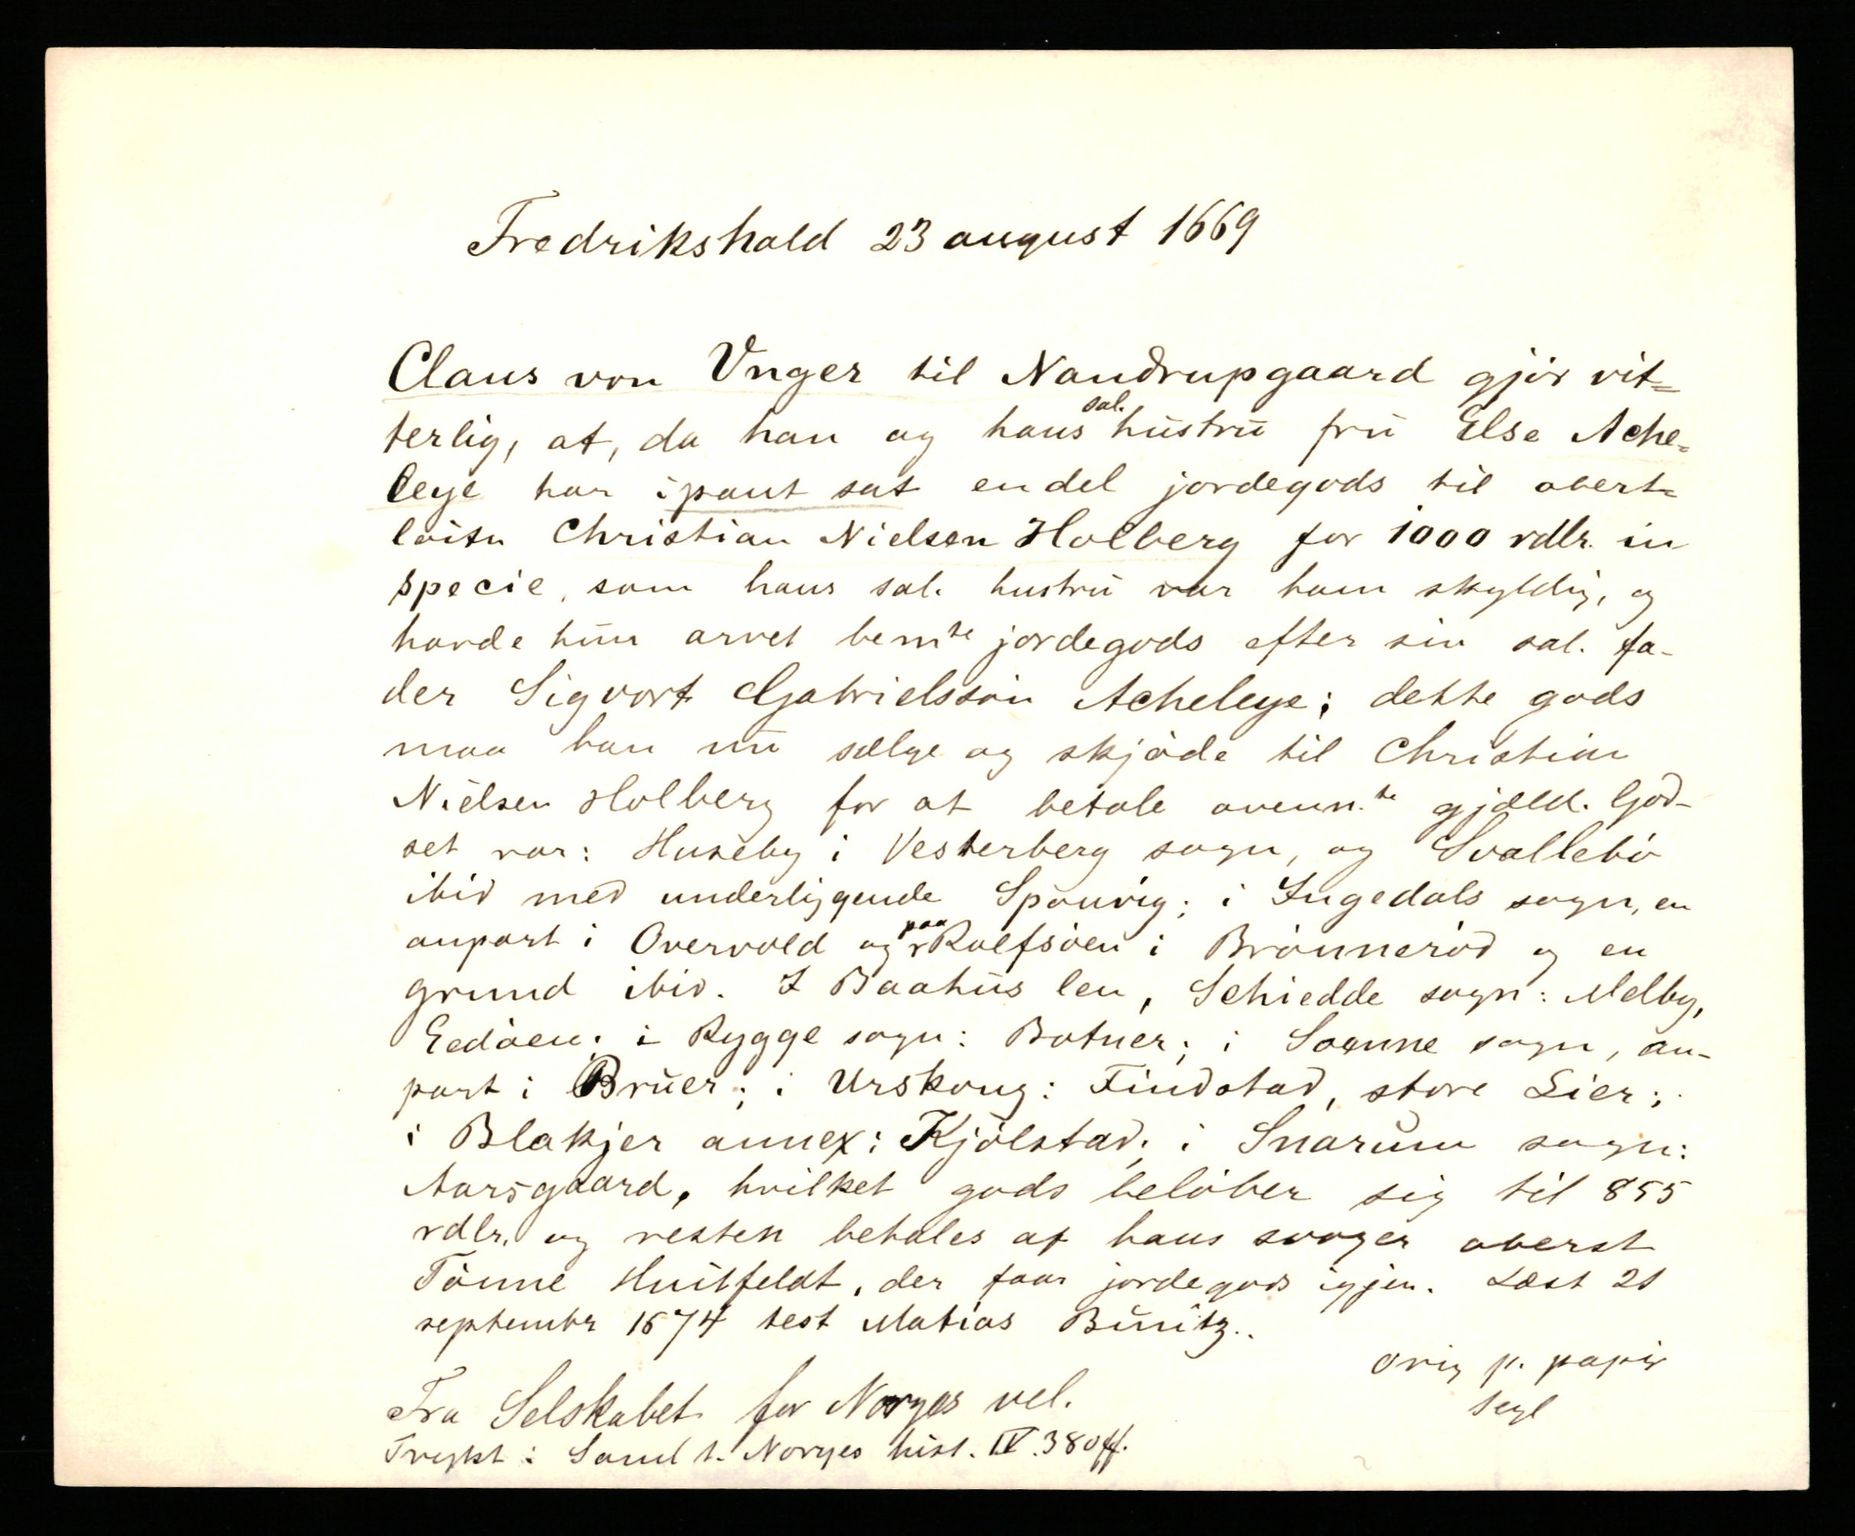 Fredrikshald 23 august 1669
Claus von Unger til Nandrupgaard gjör vit=
terlig, at, da han og hans sal. hustru fru Else Ache=
leye har i pant sat en del jordegods til oberst=
löitn Christian Nielsen Holberg for 1000 rdlr. in
specie, som hans sal. hustru var ham skyldig, og
havde hun arvet bemte jordegods efter sin sal. fa-
der Sigvort Gabrielssön Acheleye; dette gods
maa han nu sælge og skjöde til Christian
Nielsen Holberg for at betale ovenn.te gjæld. God-
set var: Huseby i Vesterberg sogn, og Svallebö
ibid med underliggende Sponvig; i Ingedals sogn, en
anpart i Overvold og paa Rolfsöen i Brönneröd og en
grund ibid. I Baahus len, Schiedde sogn: Melby,
Eedöen; i Rygge sogn: Botner; i Soenne sogn, an-
part i Bruer; i Urskoug: Findstad, store Lier;
i Blakjer annex: Kjölstad; i Snarum sogn:
Aarsgaard, hvilket gods belöber sig til 855
rdlr. og resten betales af hans svoger oberst
Tönne Huitfeldt, der faar jordegods igjen. Læst 21
septembr 1674 test Matias Bünitz.
orig p. papir
segl
Fra Selskabet for Norges vel.
Trykt i Saml t. Norges hist. IV. 380 ff.